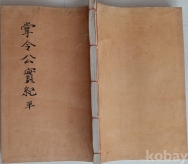 掌令公實紀 平
kobay